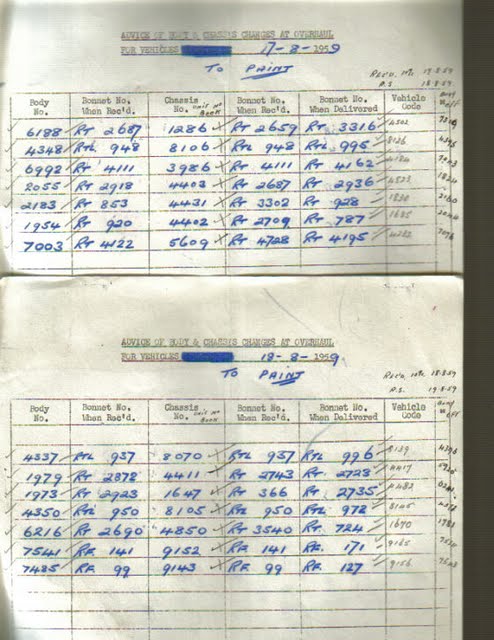 ADVICE OF BODY & CHASSIS CHANGES AT OVERHAUL
FOR VEHICLES 17-8-1959
TO PAINT
Recd. 19-8-59
P.S. 18.8.59
Body No. Bonnet No. When Rec'd. Chassis No. Unit No Book Bonnet No. When Rec'd. Bonnet No. When Delivered Vehicle Code Body off
6188 RT 2687 1286 RT 2659 RT 3316 4502
4348 RTL 948 8106 RTL 948 RTL 995 8126
6992 RT 4111 3986 RT 4111 RT 4162 4184 7003
2055 RT 2918 4403 RT 2687 RT 2936 4523 1824
2183 RT 853 4421 RT 3302 RT 928 1830 2160
1954 RT 920 4402 RT 2709 RT 787 1685
7003 RT 4122 5609 RT 4728 RT 4195 4282
ADVICE OF BODY & CHASSIS CHANGES AT OVERHAUL
FOR VEHICLES 18-8-1959
TO PAINT
Recd. 18-8-59
P.S. 19.8.59
Body No. Bonnet No. When Rec'd. Chassis No. Unit No Book Bonnet No. When Rec'd. Bonnet No. When Delivered Vehicle Code Body off
4337 RTL 937 8070 RTL 937 RTL 996 8139
1979 RT 2872 4411 RT 2743 RT 2723 4417
1973 RT 2923 1647 RT 366 RT 2735 4482
4350 RTL 950 8105 RTL 950 RTL 972 8145
6216 RT 2690 4850 RT 3540 RT 724 1670
7541 RF 141 9152 RF 141 RF. 171 9165
7485 RF 99 9143 RF 99 RF. 127 9156